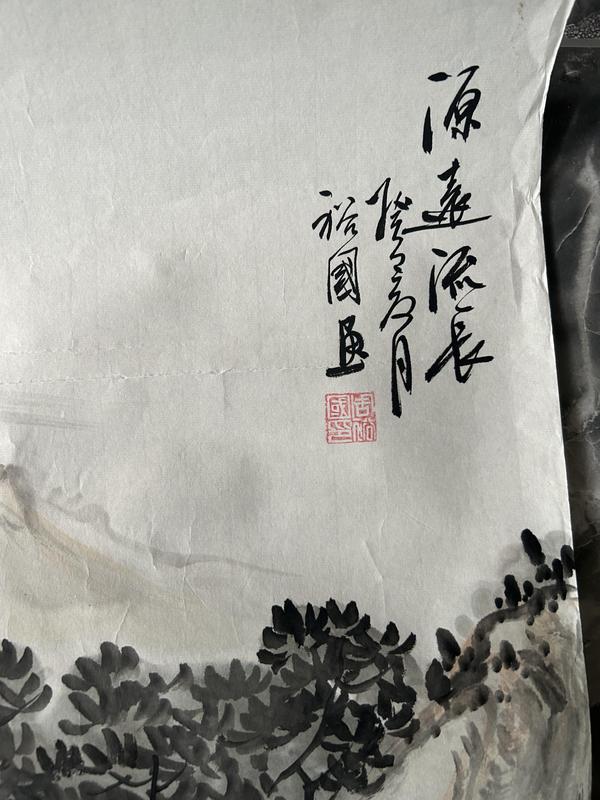 源遠流長
癸巳夏月
裕國画
周裕國印